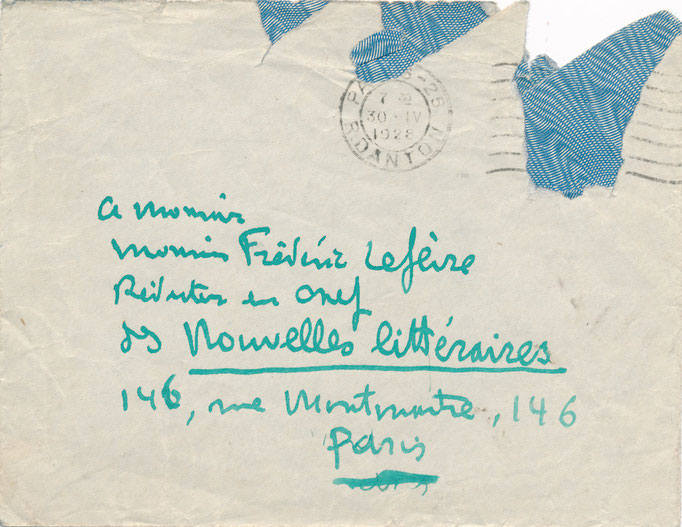 PARIS-25
7 30
30·IV
1928
R.DANTON
a monsieur
monsieur Frédéric Lefèvre
Rédacteur en chef
des Nouvelles littéraires
146, rue Montmartre, 146
Paris